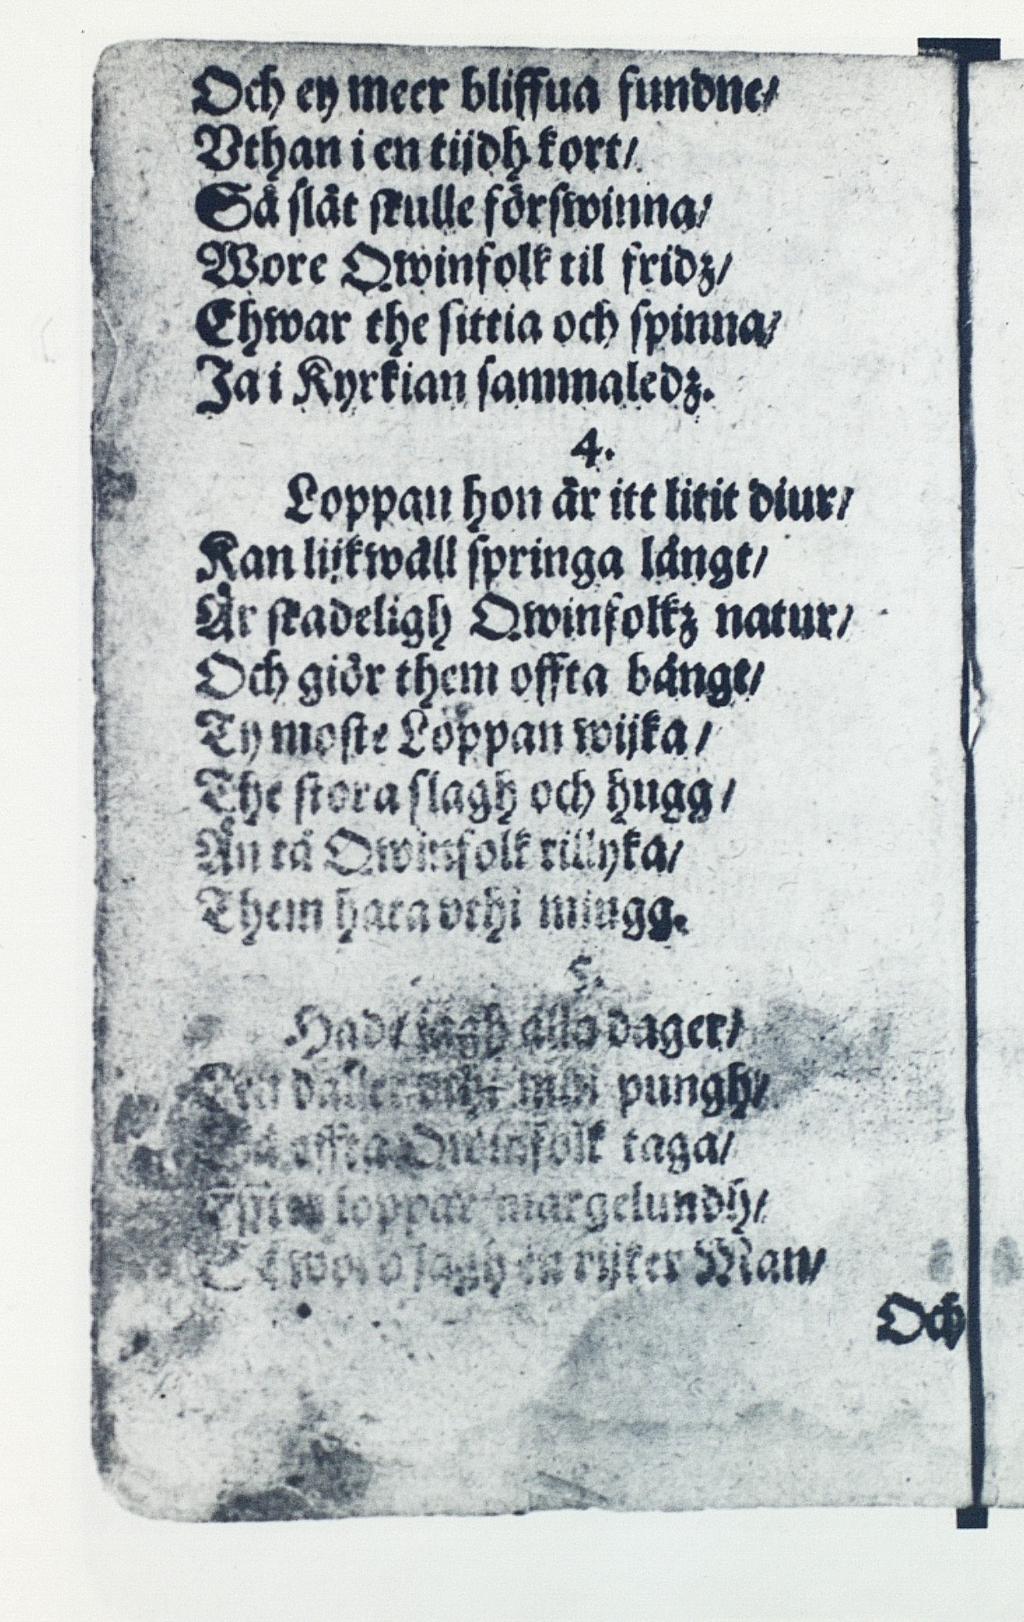 Och ey meer bliffua fundne/
Vthan i en tijdh kort/
Så slät skulle förswinna/
Wore Qwinfolk til fridz/
Ehwar the sittia och spinna/
Ja i Kyrkian sammaledz.
4.
Loppan hon är itt litit diur/
Kan lijkwäll springa långt/
Är skadeligh Qwinfolkz natur/
Och giör them offta bångt/
Ty moste Loppan wijka/
The stora slagh och hugg/
Än tå Qwinfolk tillyka/
Them hata vthi miugg.
5.
Hade jagh alla dager/
daller vthi min pungh/
offta Qwinfolk taga/
Effter loppar margelundh/
Tå woro jagh en rijker Man/
Och